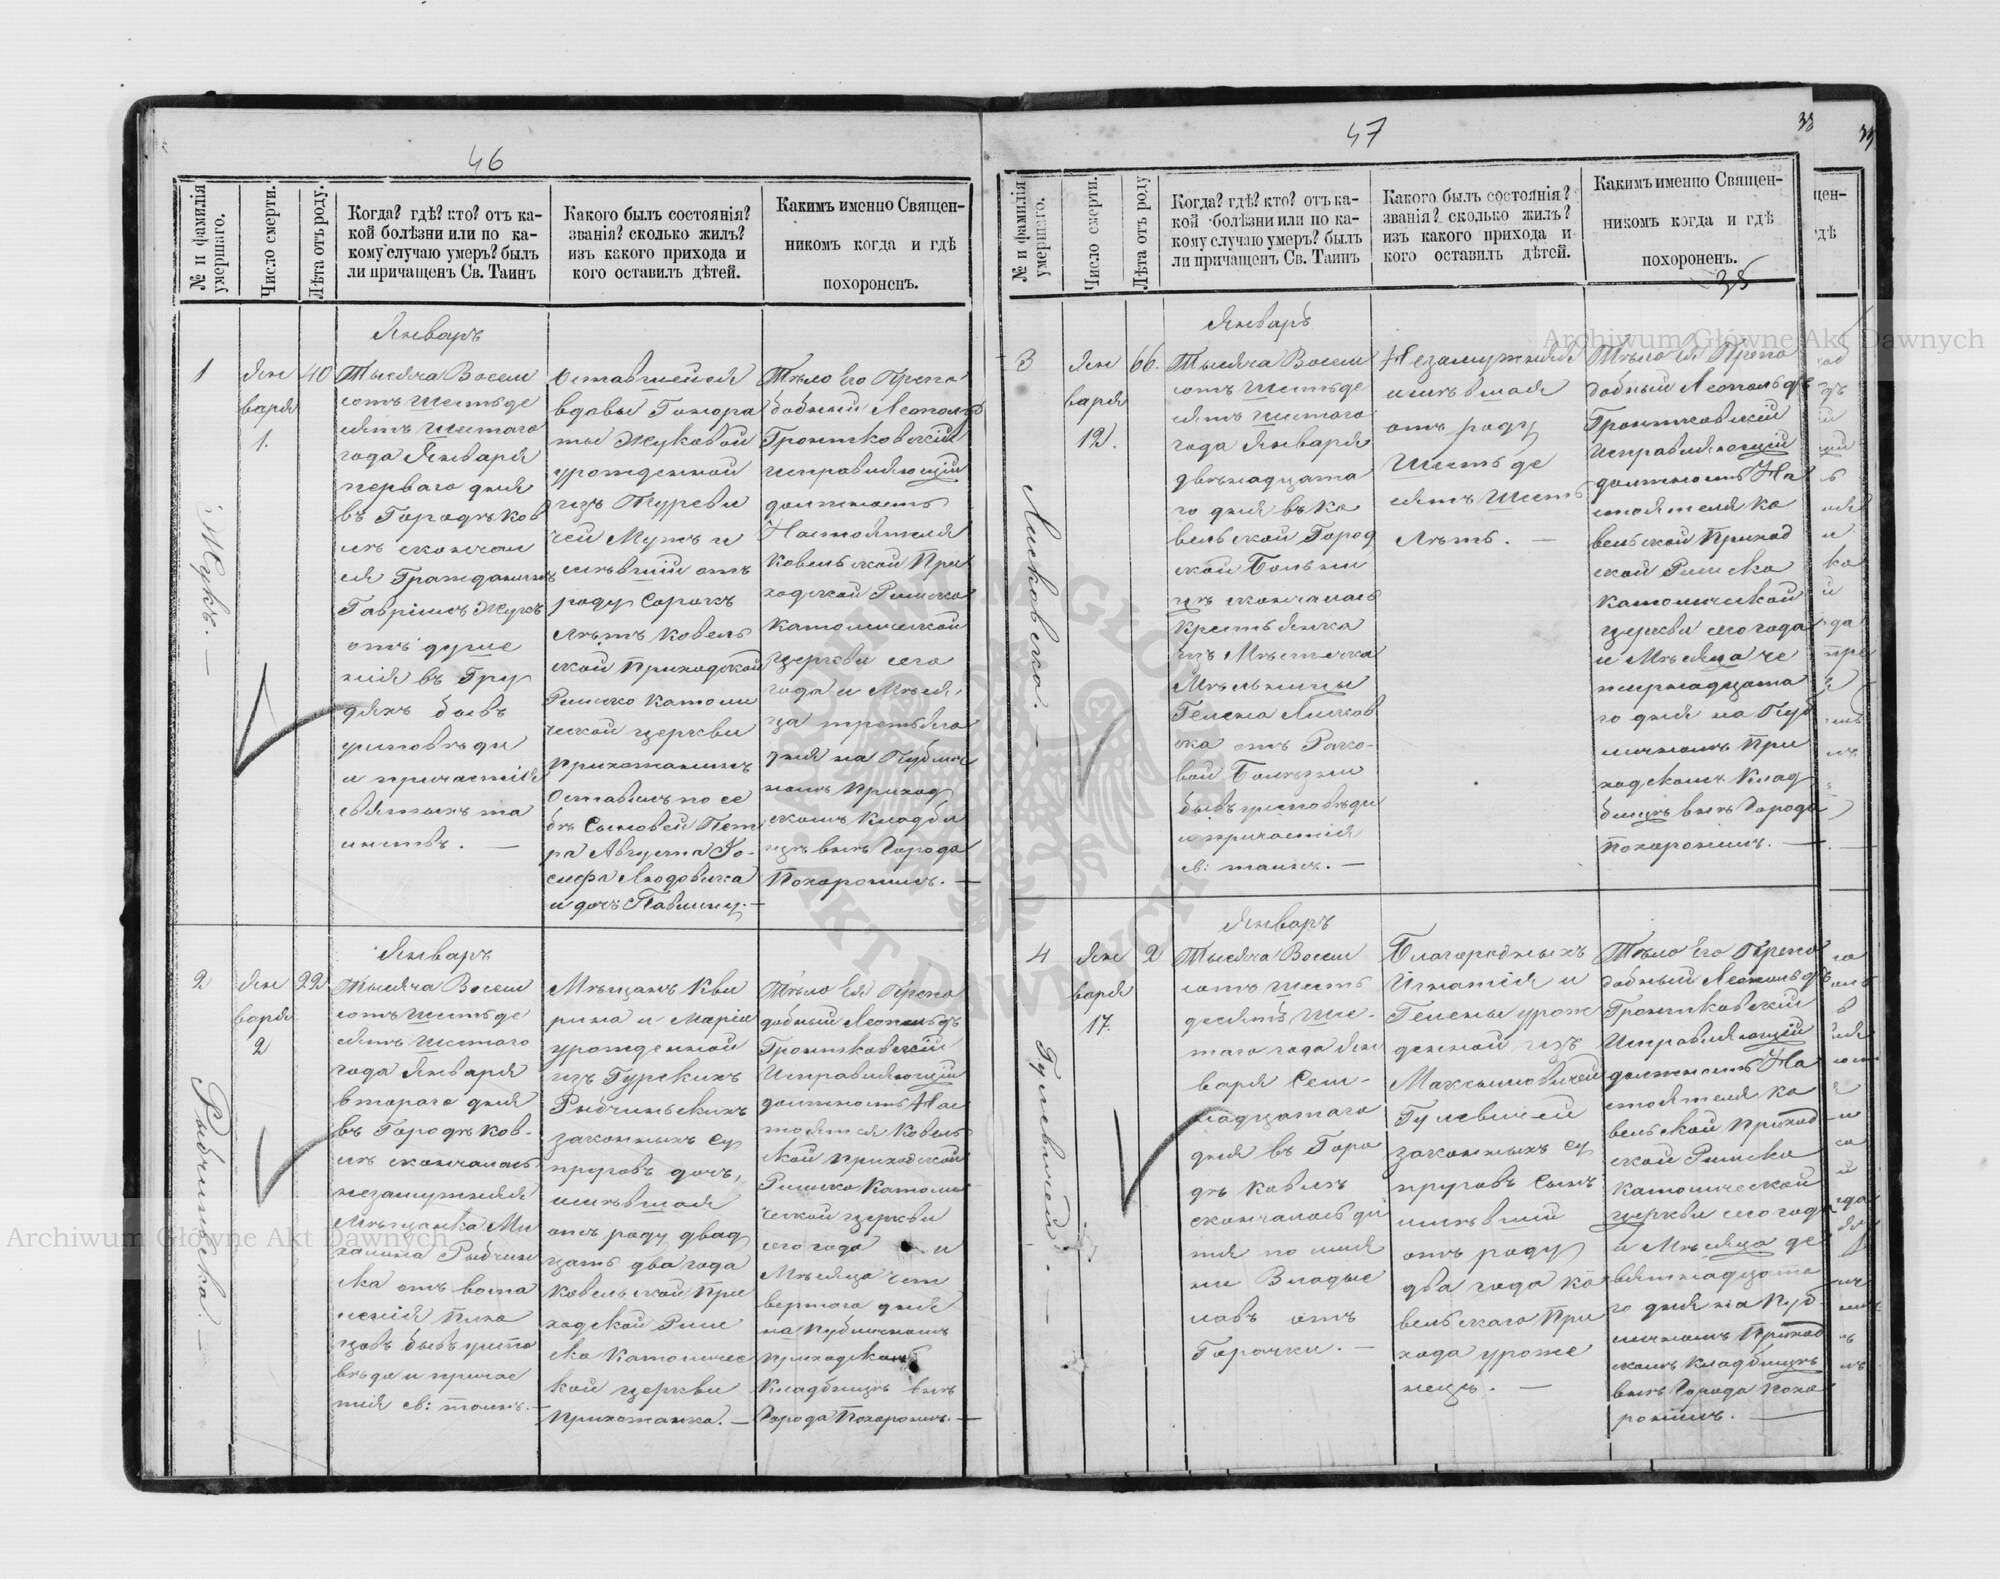 46
№ и фамилія умершаго.
Число смерти.
Лѣта отъ роду.
Когда? гдѣ? кто? отъ ка-
кой болѣзни или по ка-
кому случаю умеръ? былъ
ли причащенъ Св. Таинъ
Какого былъ состоянія?
званія? сколько жилъ?
изъ какого прихода и
кого оставилъ дѣтей.
Какимъ именно Священ-
никомъ когда и гдѣ
похороненъ.
1
Жукъ. —
Ян
варя
1.
40
Январъ
Тысяча Восем
сотъ Шестьде
сятъ Шестого
года Января
перваго дня
въ Городѣ Ков
лѣ скончал
ся Гражданинъ
Гавріилъ Жукъ
отъ души
нія въ Гру
дяхъ бывъ
исповѣди
и причастія
святыхъ та
инствъ. —
Оставшейся
вдовы Гонора
ты Жуковой
урожденной
изъ Туреви
чей Мужъ и
мѣвшій отъ
роду Сорокъ
лѣтъ Ковель
ской Приходской
Римско Католи
ческой церкви
Прихожанинъ
Оставилъ по се
бѣ Сыновей Пет
ра Августа Іо-
сифа Людовика
и дочь Павлину. —
Тѣло Его Препо
добный Леопольдъ
Гронтковскій
исправляющій
должность
Настоятеля
Ковельской При
ходской Римско
Католической
церкви сего
года и Мѣся
ца третьяго
дня на Публич
номъ Приход
скомъ Кладби
щѣ внѣ Города
Похоронилъ. —
2
Рыбчинска. —
Ян
варя
2
22
Январъ
Тысяча Восем
сотъ Шестьде
сятъ Шестого
года Января
втораго дня
въ Городѣ Ков-
лѣ скончалась
незамужняя
Мѣщанка Ми
халина Рыбчин
ска отъ воспа
ленія
бывъ испо
вѣди и причас
тія св: таинъ. —
Мѣщанъ Кви
рина и Маріи
урожденной
изъ Гурскихъ
Рыбчинскихъ
законныхъ су
пруговъ дочь,
имѣвшая
отъ роду двад
цать два года
Ковельской При
ходской Рим
ско Католичес
кой церкви
Прихожанка. —
Тѣло Ея Препо
добный Леопольдъ
Гронтковскій
Исправляющій
должность Нас
тоятеля Ковель
ской Приходской
Римско Католи
ческой церкви
сего года и
Мѣсяца чет
вертаго дня
на Публичномъ
Приходскомъ
Кладбищѣ внѣ
Города Похоронилъ. —
47
33
39
№ и фамилія умершаго.
Число смерти.
Лѣта отъ роду
Когда? гдѣ? кто? отъ ка-
кой болѣзни или по ка-
кому случаю умеръ? былъ
ли причащенъ Св. Таинъ
Какого былъ состоянія?
званія? сколько жилъ?
изъ какого прихода и
кого оставилъ дѣтей.
Какимъ именно Священ-
никомъ когда и гдѣ
похороненъ.
35
3
Лисковска. —
Ян
варя
12.
66.
Январъ
Тысяча Восем
сотъ Шестьде
сятъ Шестого
года Января
двѣнадцата
го дня въ Ко
вельской Город
ской Больни
цѣ скончалась
Крестьянка
изъ Мѣстечка
Мѣльницы
Гелена Лисков
ска отъ Рако-
вой Болѣзни
бывъ исповѣди
и причастія
св: таинъ. —
Незамужняя
имѣвшая
отъ роду
Шестьде
сятъ Шесть
лѣтъ. —
Тѣло Ея Препо
добный Леопольдъ
Гронтковскій
Исправляющій
должность На
стоятеля Ко
вельской Приход
ской Римско
Католической
церкви сего года
и Мѣсяца че
тырнадцата
го дня на Пуб
личномъ При
ходскомъ Клад
бищѣ внѣ Города
Похоронилъ. —
4
Гулевичей. —
Ян
варя
17.
2
Январъ
Тысяча Восем
сотъ Шесть
десятъ Ше-
стаго года Ян
варя Сем-
надцатаго
дня въ Горо
дѣ Ковлѣ
скончалось ди
тя по име
ни Владис
лавъ отъ
Горячки. —
Благородныхъ
Игнатія и
Гелены урож
денной изъ
Максимовичей
Гулевичей
законныхъ су
пруговъ Сынъ
имѣвшій
отъ роду
два года Ко
вельскаго При
хода уроже
нецъ. —
Тѣло Его Препо
добный Леопольдъ
Гронтковскій
Исправляющій
должность На
стоятеля Ко
вельской Приход
ской Римско
Католической
церкви сего года
и Мѣсяца де
вятнадцата
го дня на Пуб-
личномъ Приход
скомъ Кладбищѣ
внѣ Города Похо
ронилъ. —
Archiwum Główne Akt Dawnych
Archiwum Główne Akt Dawnych